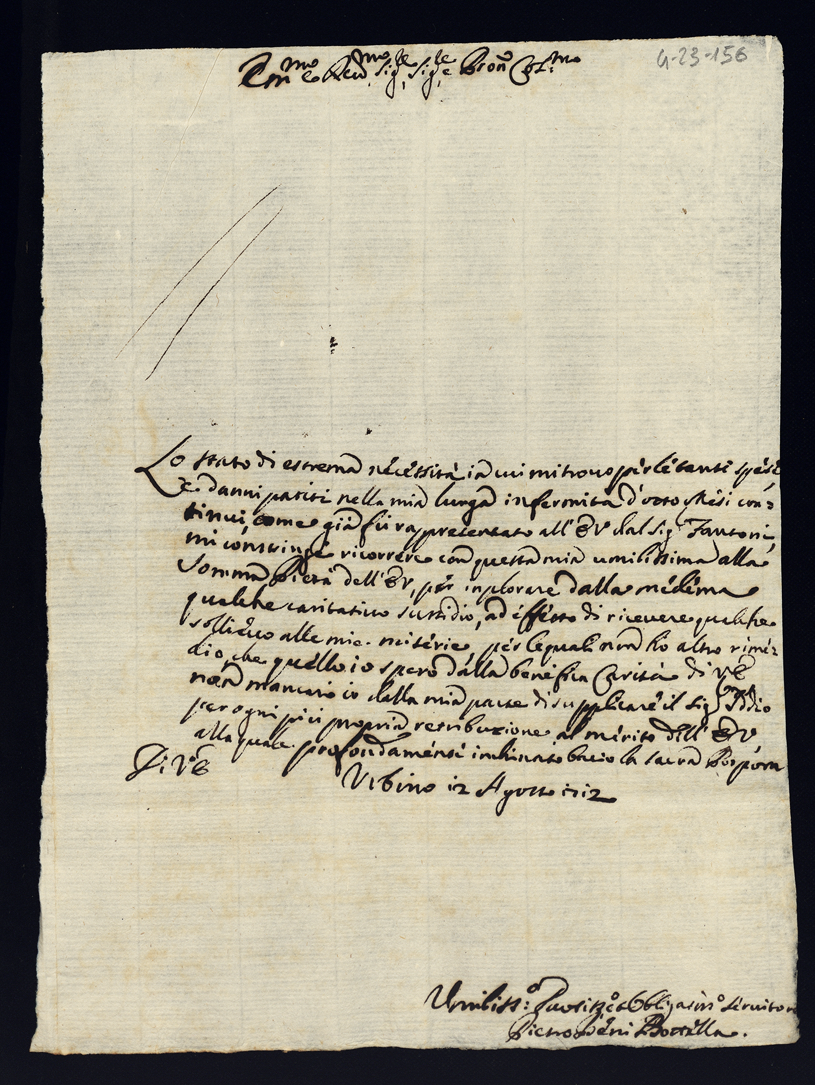 Em.mo e Reu.mo Sig.re Sig.re e Pron Col.mo
G-23-156
Lo stato di estrema necessità in cui mi trouo per le tante spese
e danni patiti nella mia lunga infermità d'otto Mesi con=
tinui, come già fù rappresentato all'E.V. dal Sig.r Fantoni,
mi constringe ricorrere con questa mia umilissima alla
somma Pietà dell'E.V., per inplorare dalla medema
qualche caritatiuo sussidio, ad effetto di riceuere qualche
sollieuo alle mie miserie, per le quali non hò altro rime=
dio, che quello io spero dalla benefica Carità di V.E.
non mancarò io dalla mia parte di supplicare il Sig.r Iddio
per ogni più propria retribuzione al merito dell'E.V.
alla quale profondamente inchinato bacio la sacra Porpora
Di V.E.
Vrbino 12 Agosto 1712
Vmiliss.o Deuotiss.o et Obligatiss.o Seruitore
Pietro